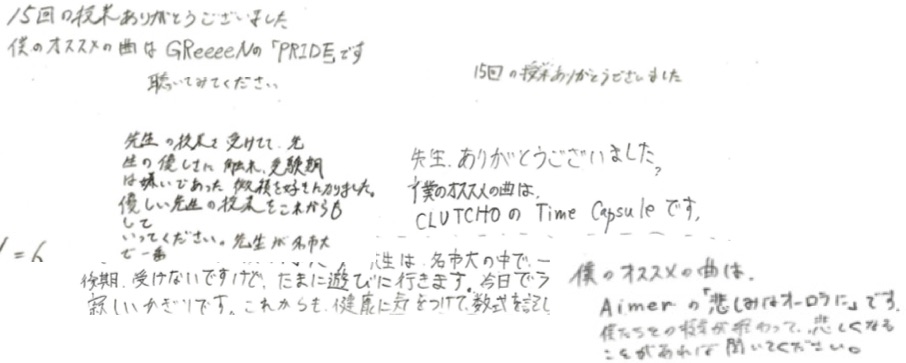 15回の授業ありがとうございました
僕のオススメの曲はGReeeeNの「PRIDE」です
聴いてみてください
15回の授業ありがとうございました
先生の授業を受けてて、先
生の優しさに触れ、受験期
は嫌いであった微積を好きになりました。
優しい先生の授業をこれからも
して
いってください。先生が名市大
で一番
先生、ありがとうございました。
僕のオススメの曲は、
CLUTCHOのTime Capsuleです。
= 6
生は、名市大の中で、一
後期、受けないですけど、たまに遊びに行きます。今日でラ
寂しいかぎりです。これからも、健康に気をつけて、数式を記し
僕のオススメの曲は、
Aimerの「悲しみはオーロラに」です。
僕たちとの授業が終わって、悲しくなる
ことがあれば聞いてください。